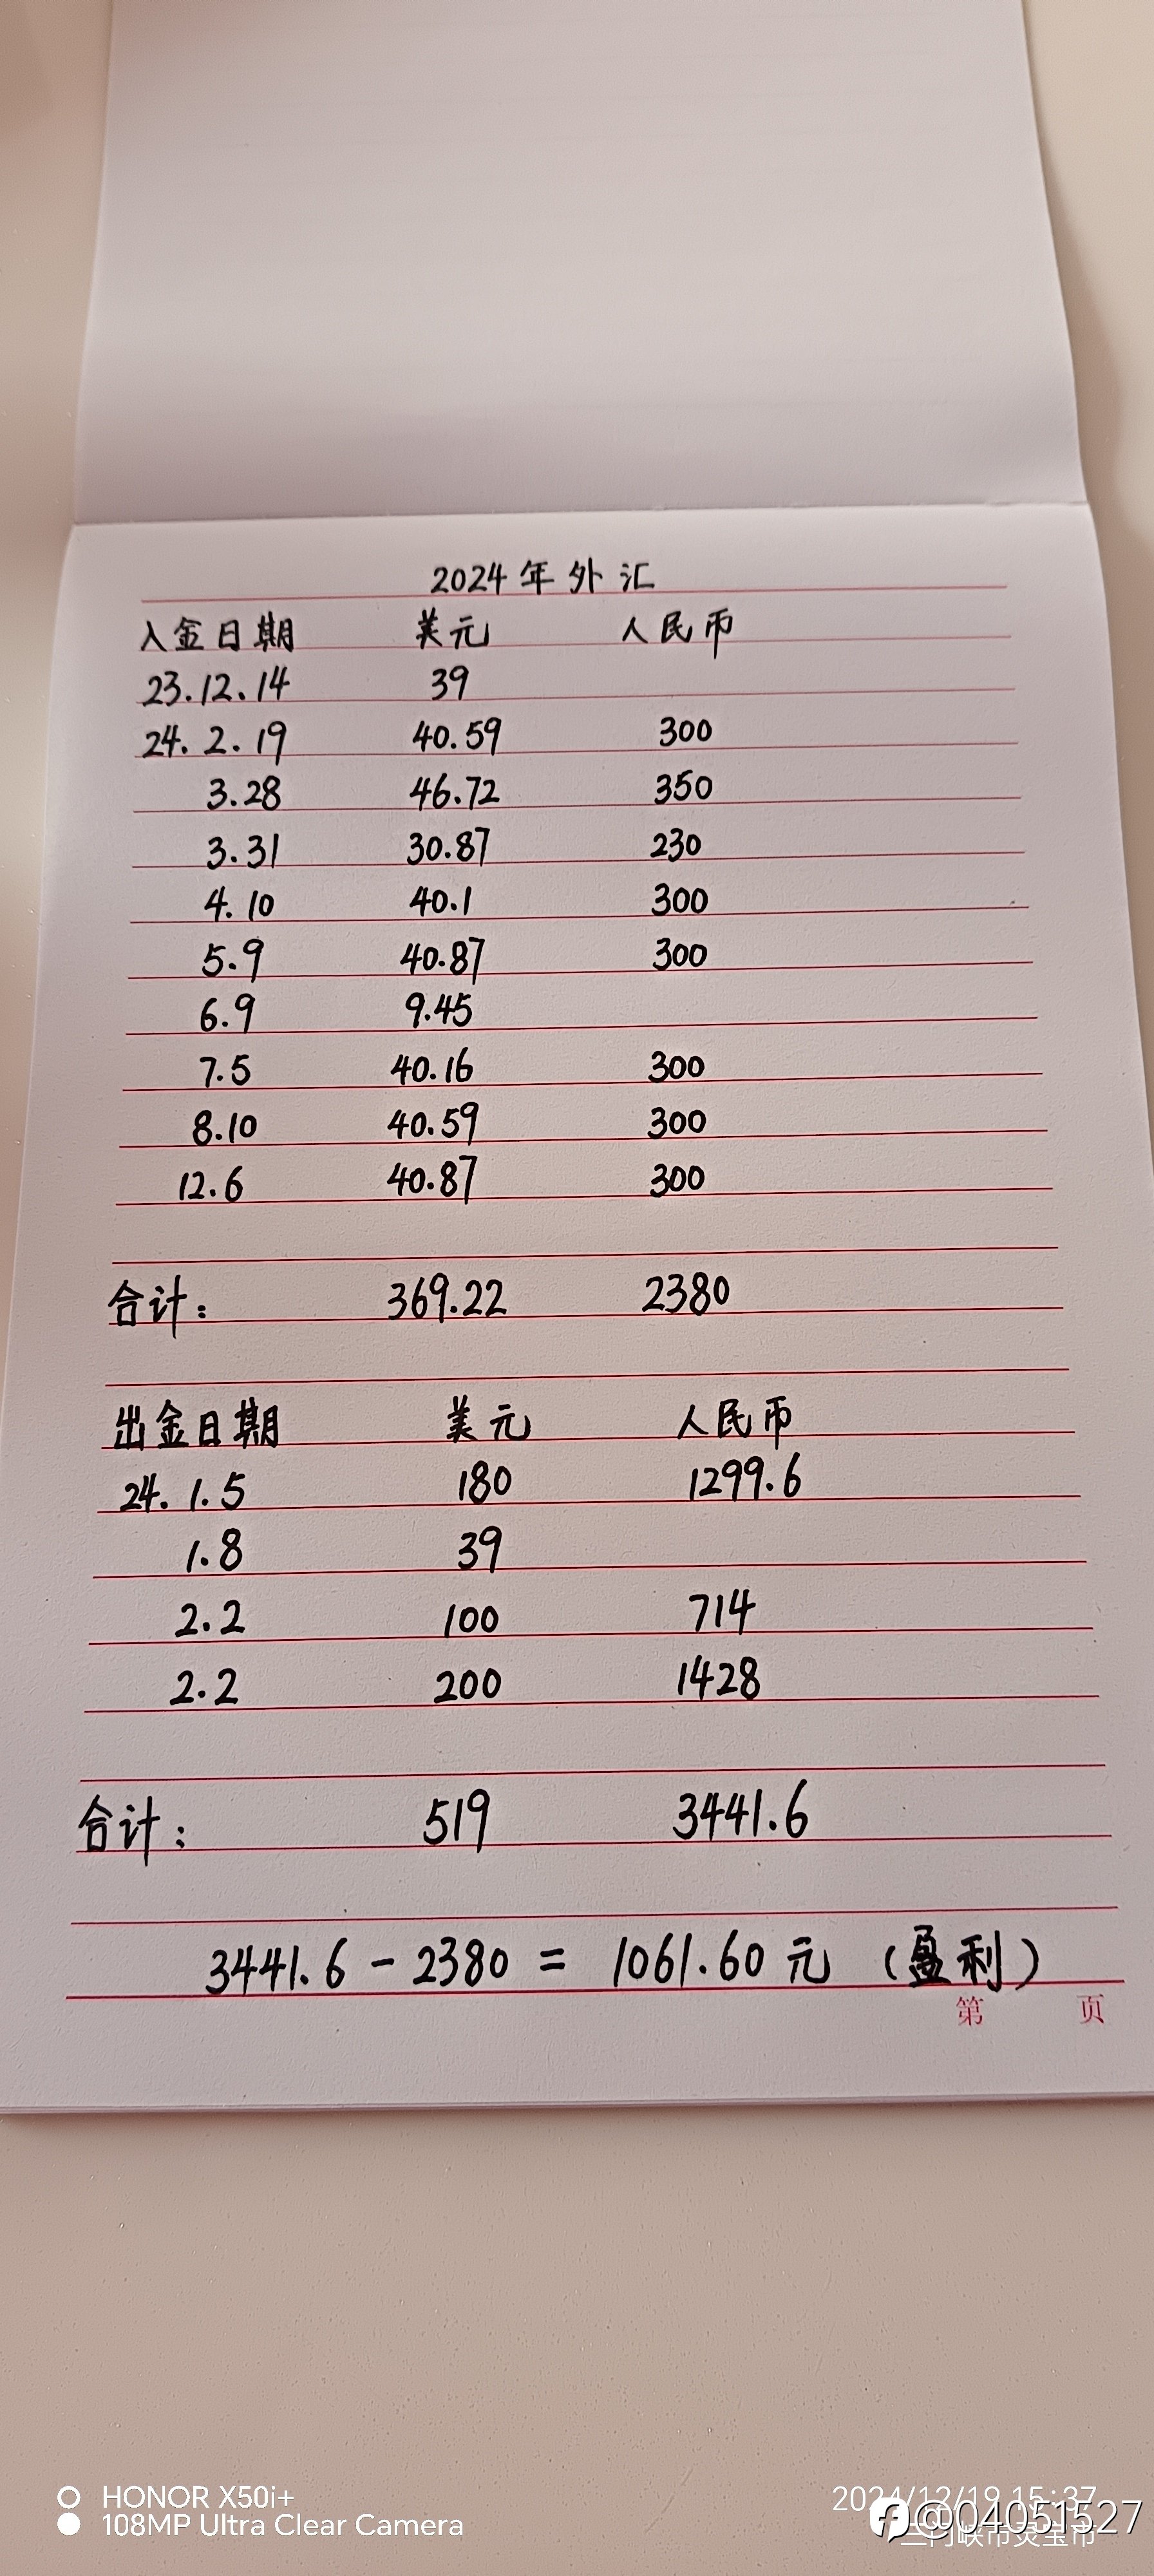 2024年外汇
入金日期 美元 人民币
23.12.14 39
24.2.19 40.59 300
3.28 46.72 350
3.31 30.87 230
4.10 40.1 300
5.9 40.87 300
6.9 9.45
7.5 40.16 300
8.10 40.59 300
12.6 40.87 300
合计: 369.22 2380
出金日期 美元 人民币
24.1.5 180 1299.6
1.8 39
2.2 100 714
2.2 200 1428
合计: 519 3441.6
3441.6 - 2380 = 1061.60元 (盈利)
第 页
HONOR X50i+
108MP Ultra Clear Camera
2024/12/19 15:37
@04051527
三门峡市灵宝市